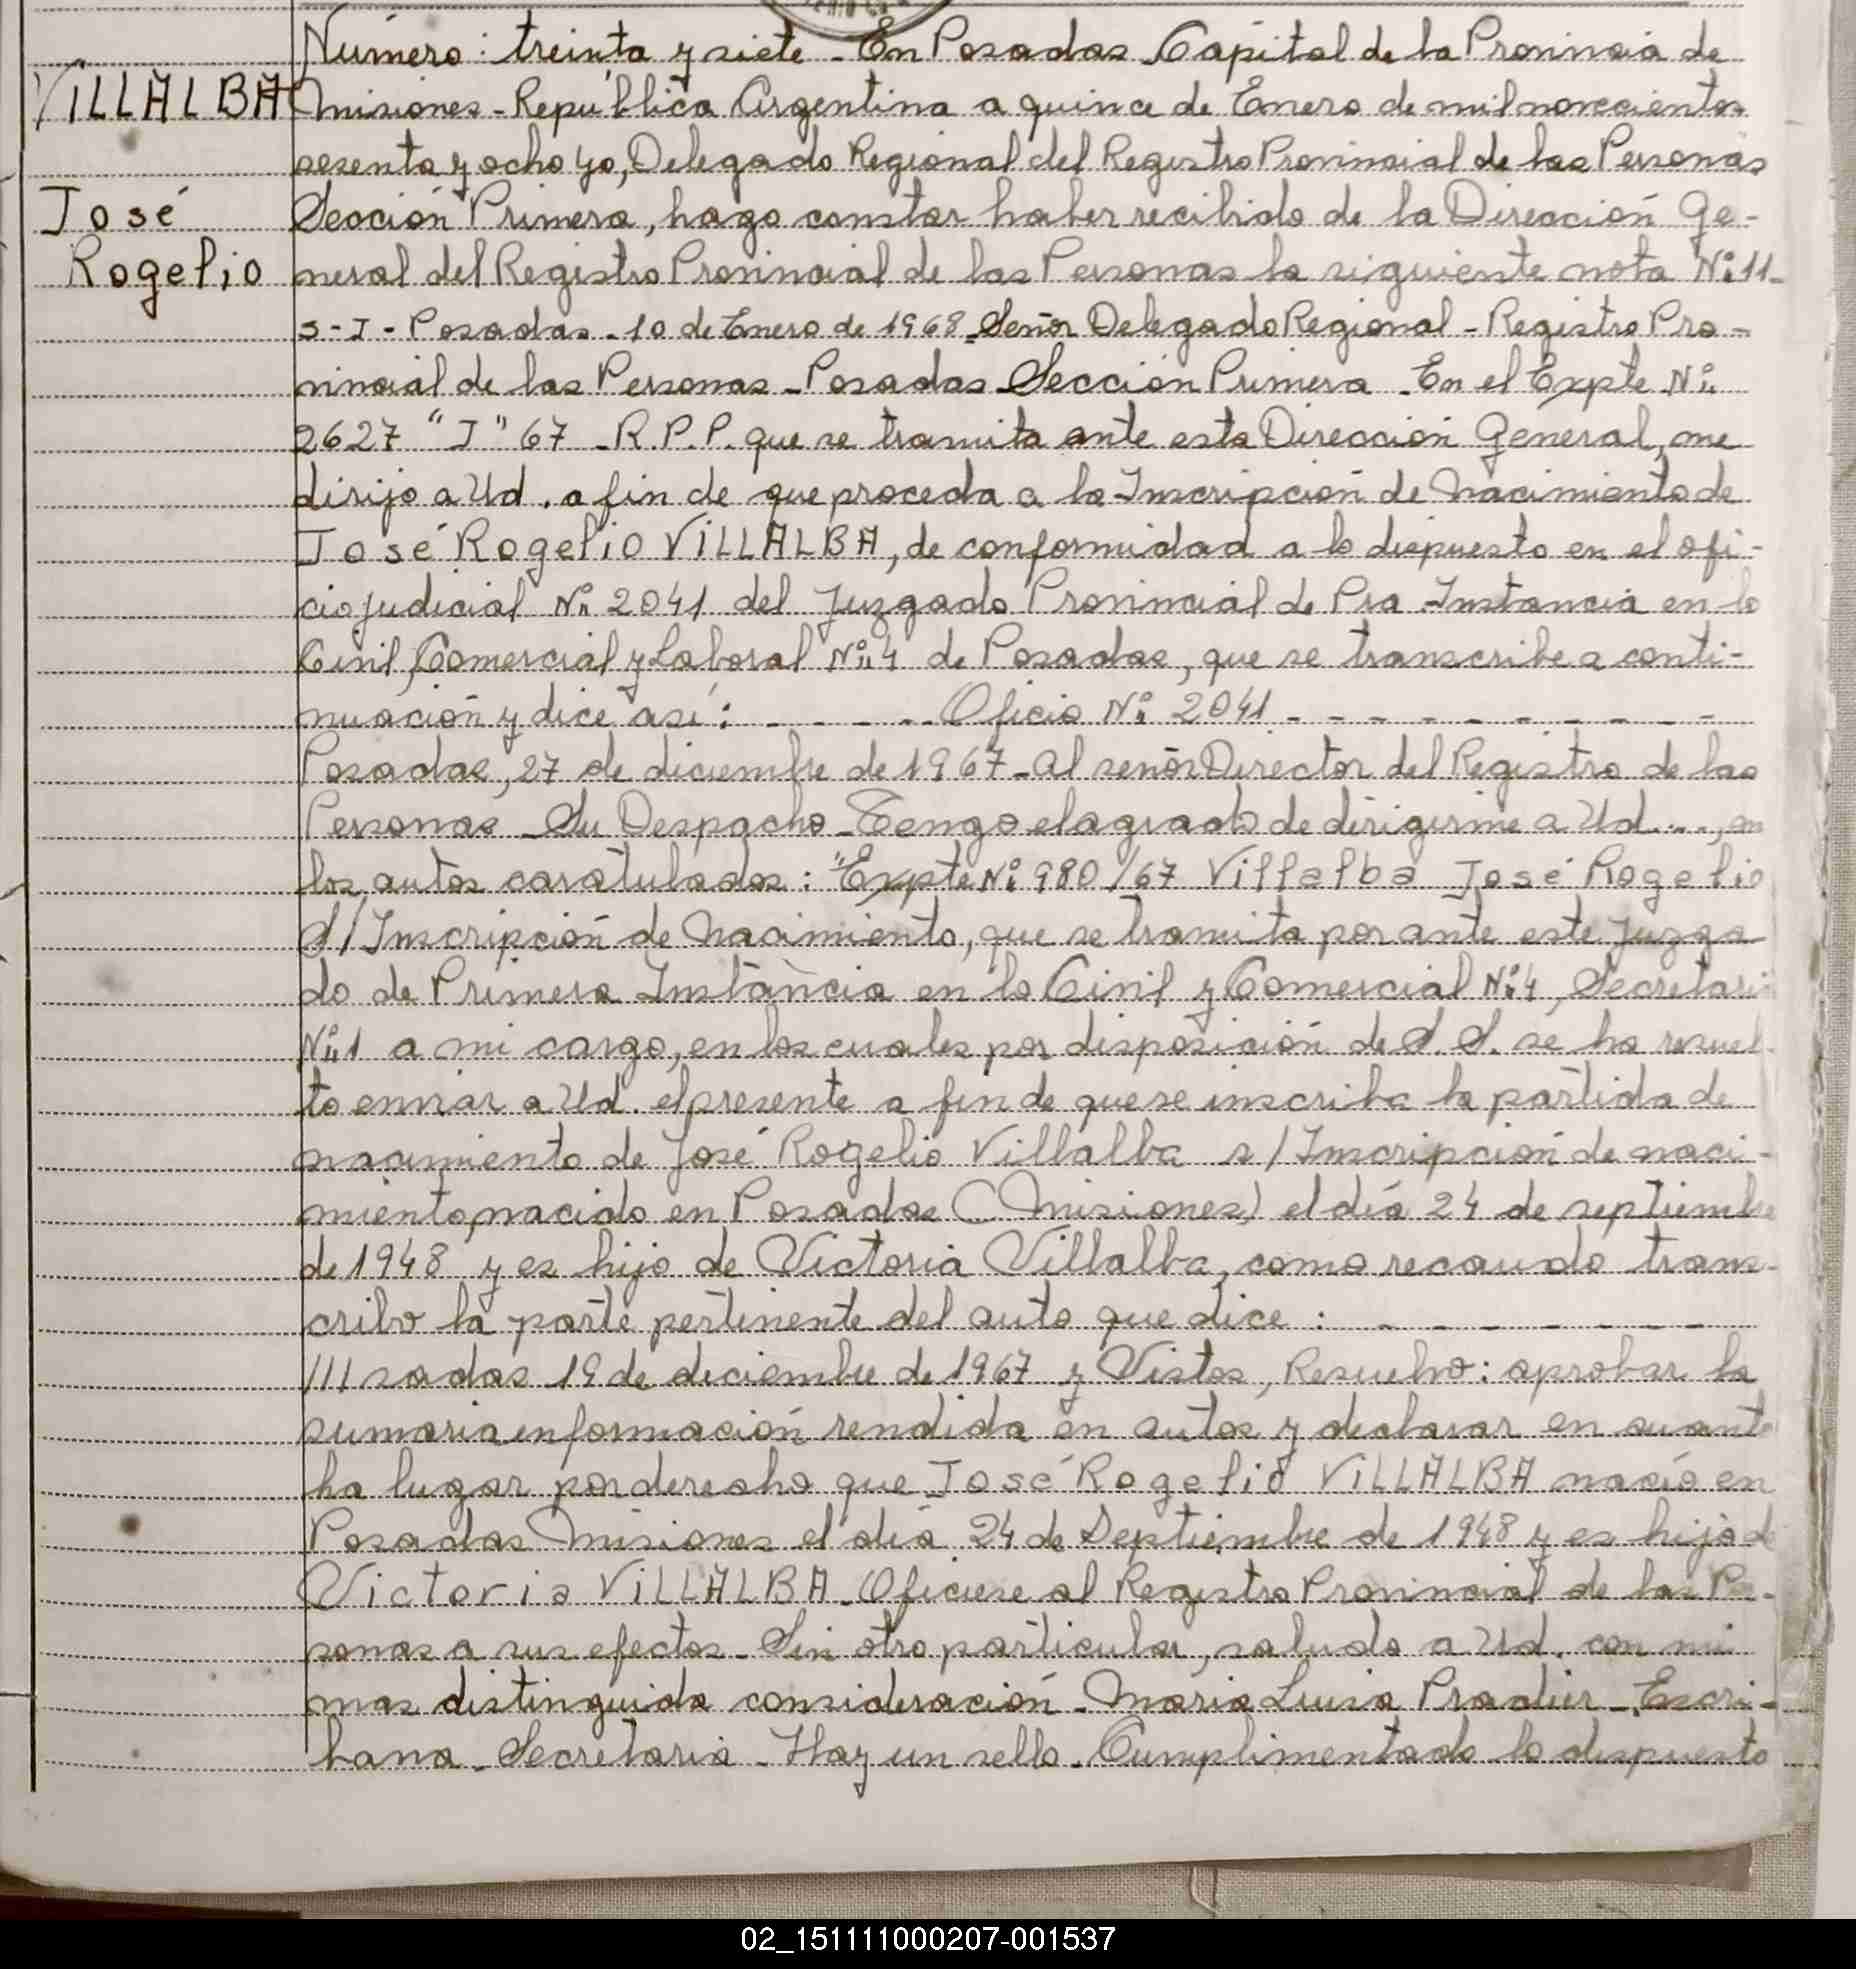 VILLALBA
José
Rogelio
Número: treinta y siete - En Posadas Capital de la Provincia de
Misiones - República Argentina a quince de Enero de mil novecientos
sesenta y ocho yo, Delegado Regional del Registro Provincial de las Personas
Sección Primera, hago constar haber recibido de la Dirección Ge-
neral del Registro Provincial de las Personas la siguiente nota Nº 11-
S-I- Posadas - 10 de Enero de 1968 - Señor Delegado Regional - Registro Pro-
vincial de las Personas - Posadas Sección Primera - En el Expte Nº
2627 "I" 67 - R.P.P. que se tramita ante esta Dirección General, me
dirijo a Ud. a fin de que proceda a la Inscripción de Nacimiento de
José Rogelio VILLALBA, de conformidad a lo dispuesto en el ofi-
cio judicial Nº 2041 del Juzgado Provincial de Pra Instancia en lo
Civil, Comercial y Laboral Nº 4 de Posadas, que se transcribe a conti-
nuación y dice así: - - - - - Oficio Nº 2041 - - - - - - - - -
Posadas, 27 de diciembre de 1967 - Al señor Director del Registro de las
Personas - Su Despacho - Tengo el agrado de dirigirme a Ud. ..., en
los autos caratulados: "Expte Nº 980/67 Villalba José Rogelio
S/Inscripción de Nacimiento, que se tramita por ante este Juzga
do de Primera Instancia en lo Civil y Comercial Nº 4, Secretaria
Nº 1 a mi cargo, en los cuales por disposición de S.S. se ha resuel-
to enviar a Ud. el presente a fin de que se inscriba la partida de
nacimiento de José Rogelio Villalba s/Inscripción de naci-
miento, nacido en Posadas (Misiones) el día 24 de septiembre
de 1948 y es hijo de Victoria Villalba, como recaudo trans-
cribo la parte pertinente del auto que dice: - - - - - - -
///sadas 19 de deciembre de 1967 y Vistos, Resuelvo: aprobar la
sumaria información rendida en autos y declarar en cuanto
ha lugar por derecho que José Rogelio VILLALBA nació en
Posadas Misiones el día 24 de Septiembre de 1948 y es hijo de
Victoria VILLALBA. Oficiese al Registro Provincial de las Pe-
sonas a sus efectos - Sin otro particular, saludo a Ud. con mi
mas distinguida consideración - Maria Luisa Pradier - Escri-
bana - Secretaria - Hay un sello - Cumplimentado lo dispuesto
02_151111000207-001537